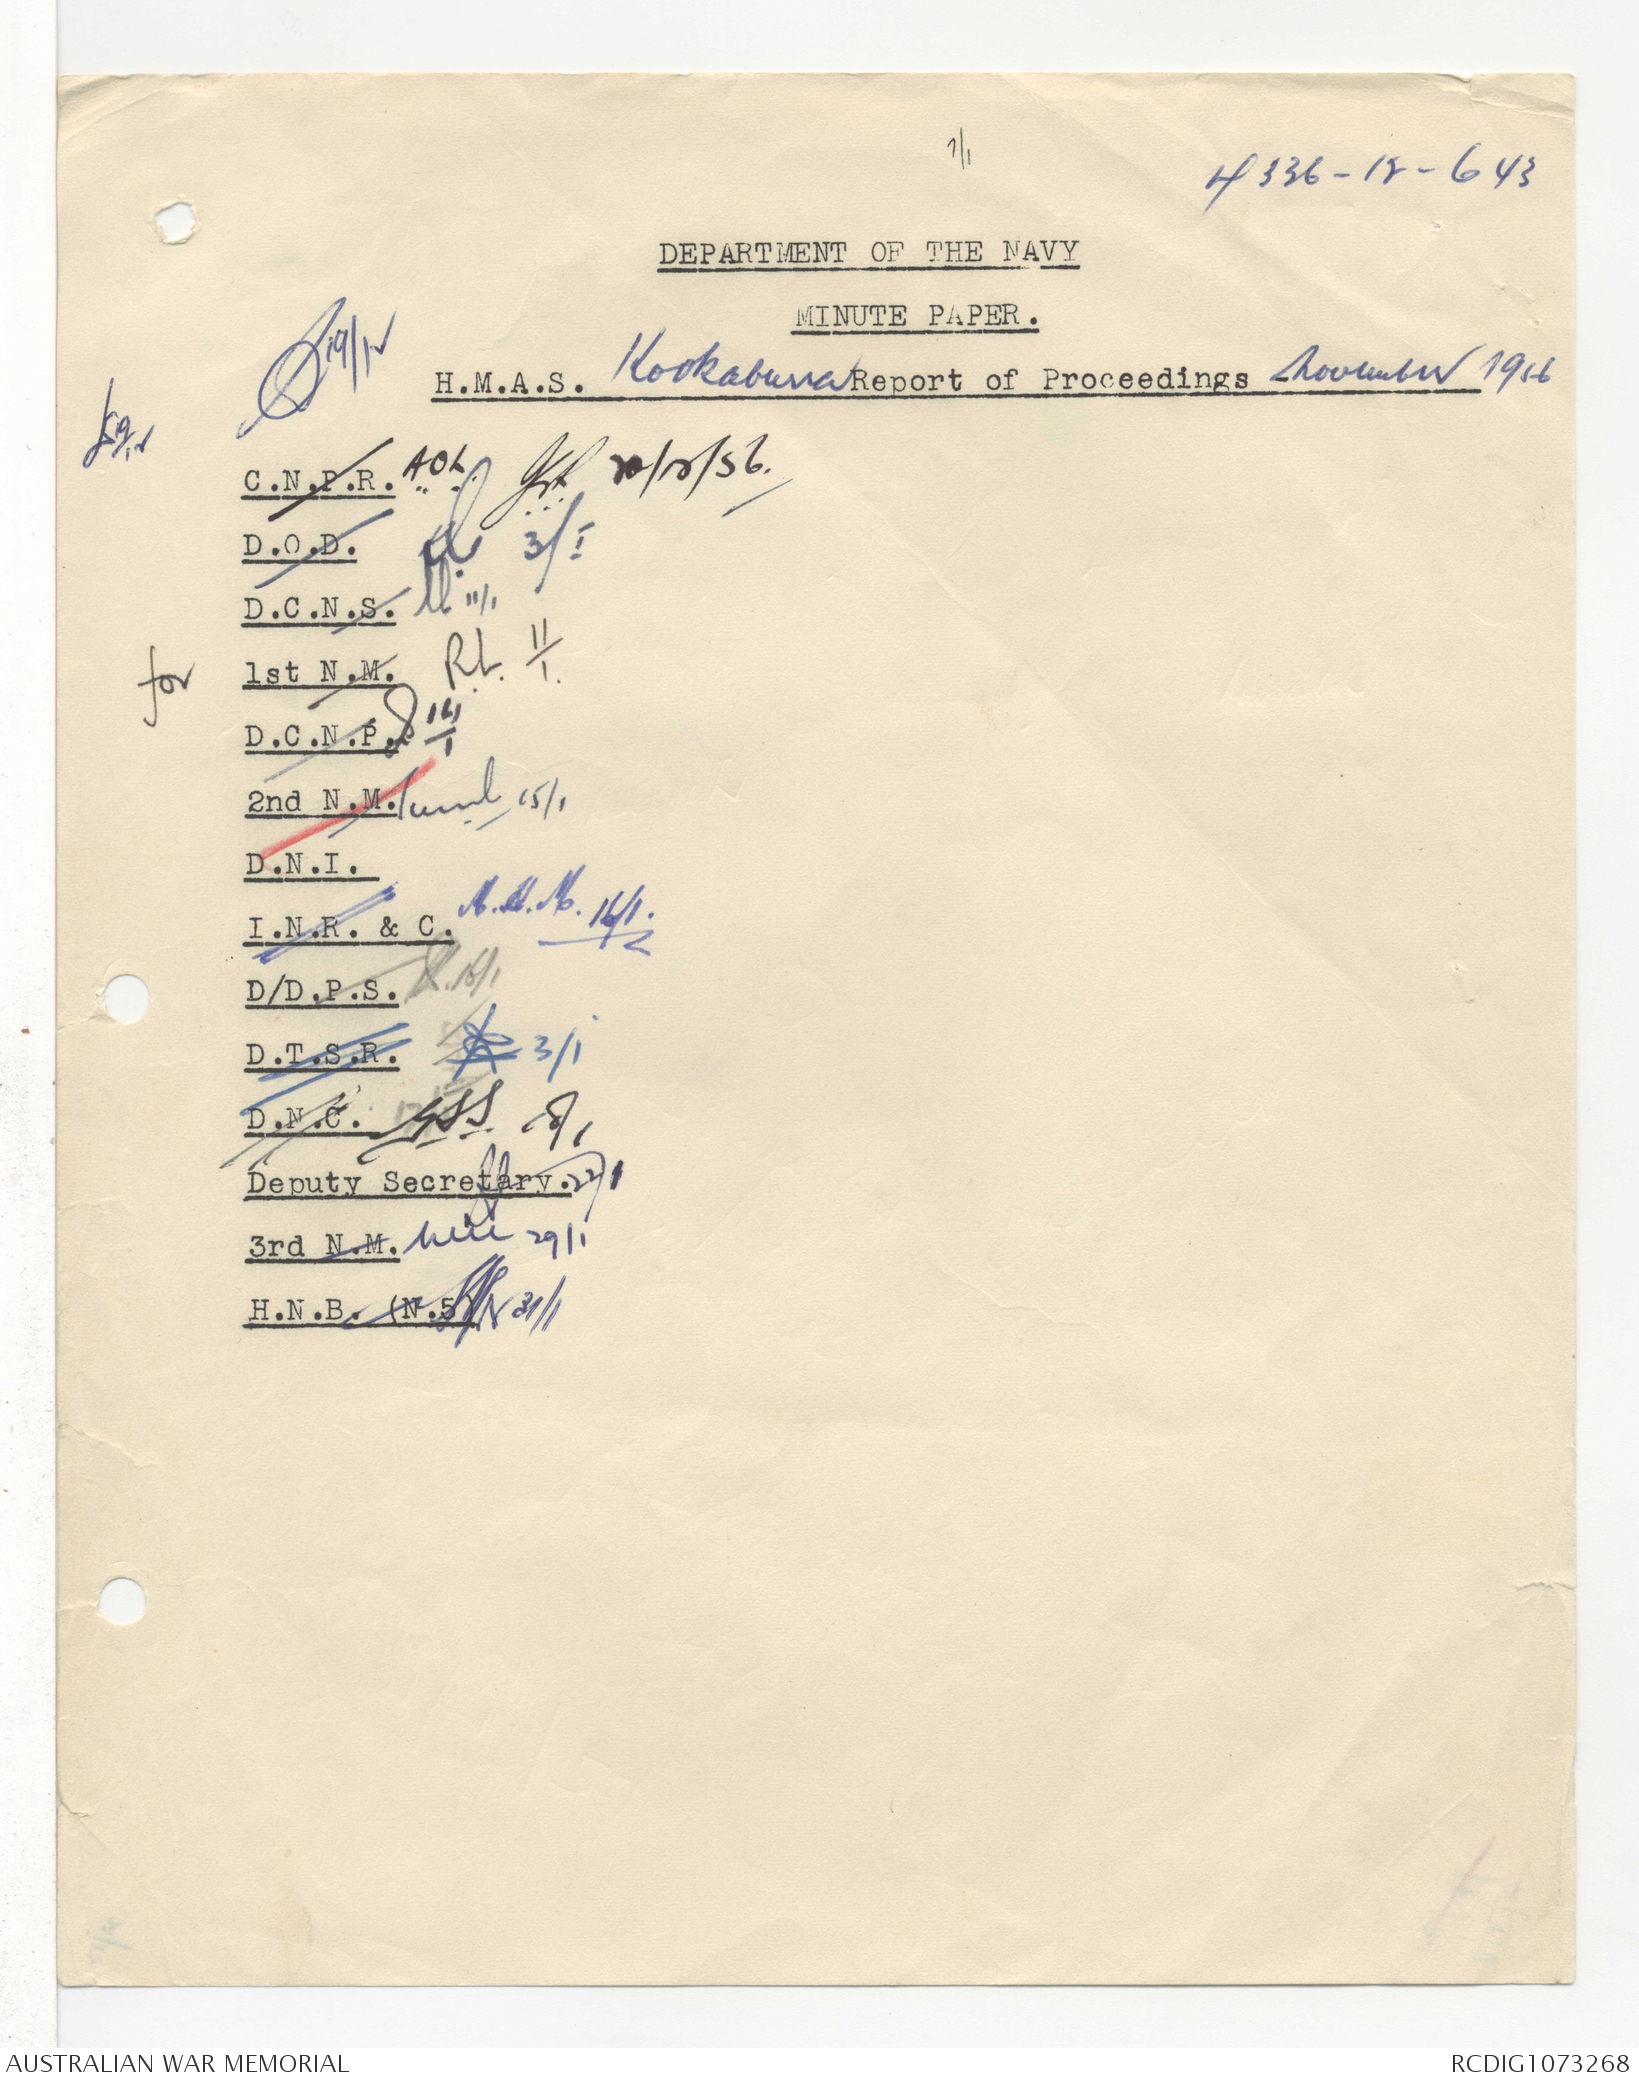 7/1
4336-12-643
DEPARTMENT OF THE NAVY
MINUTE PAPER.
19/12
H.M.A.S. Kookaburra Report of Proceedings November 1956
C.N.P.R. AOL 20/12/56.
D.O.D. 3/1
D.C.N.S. 11/1
for 1st N.M. RL. 11/1
D.C.N.P.
2nd N.M. 15/1
D.N.I.
I.N.R. & C. 16/1.
D/D.P.S.
D.T.S.R. 3/1
D.N.C. 8/1
Deputy Secretary. 22/1
3rd N.M. 29/1
H.N.B. (N.5) 31/1
AUSTRALIAN WAR MEMORIAL
RCDIG1073268